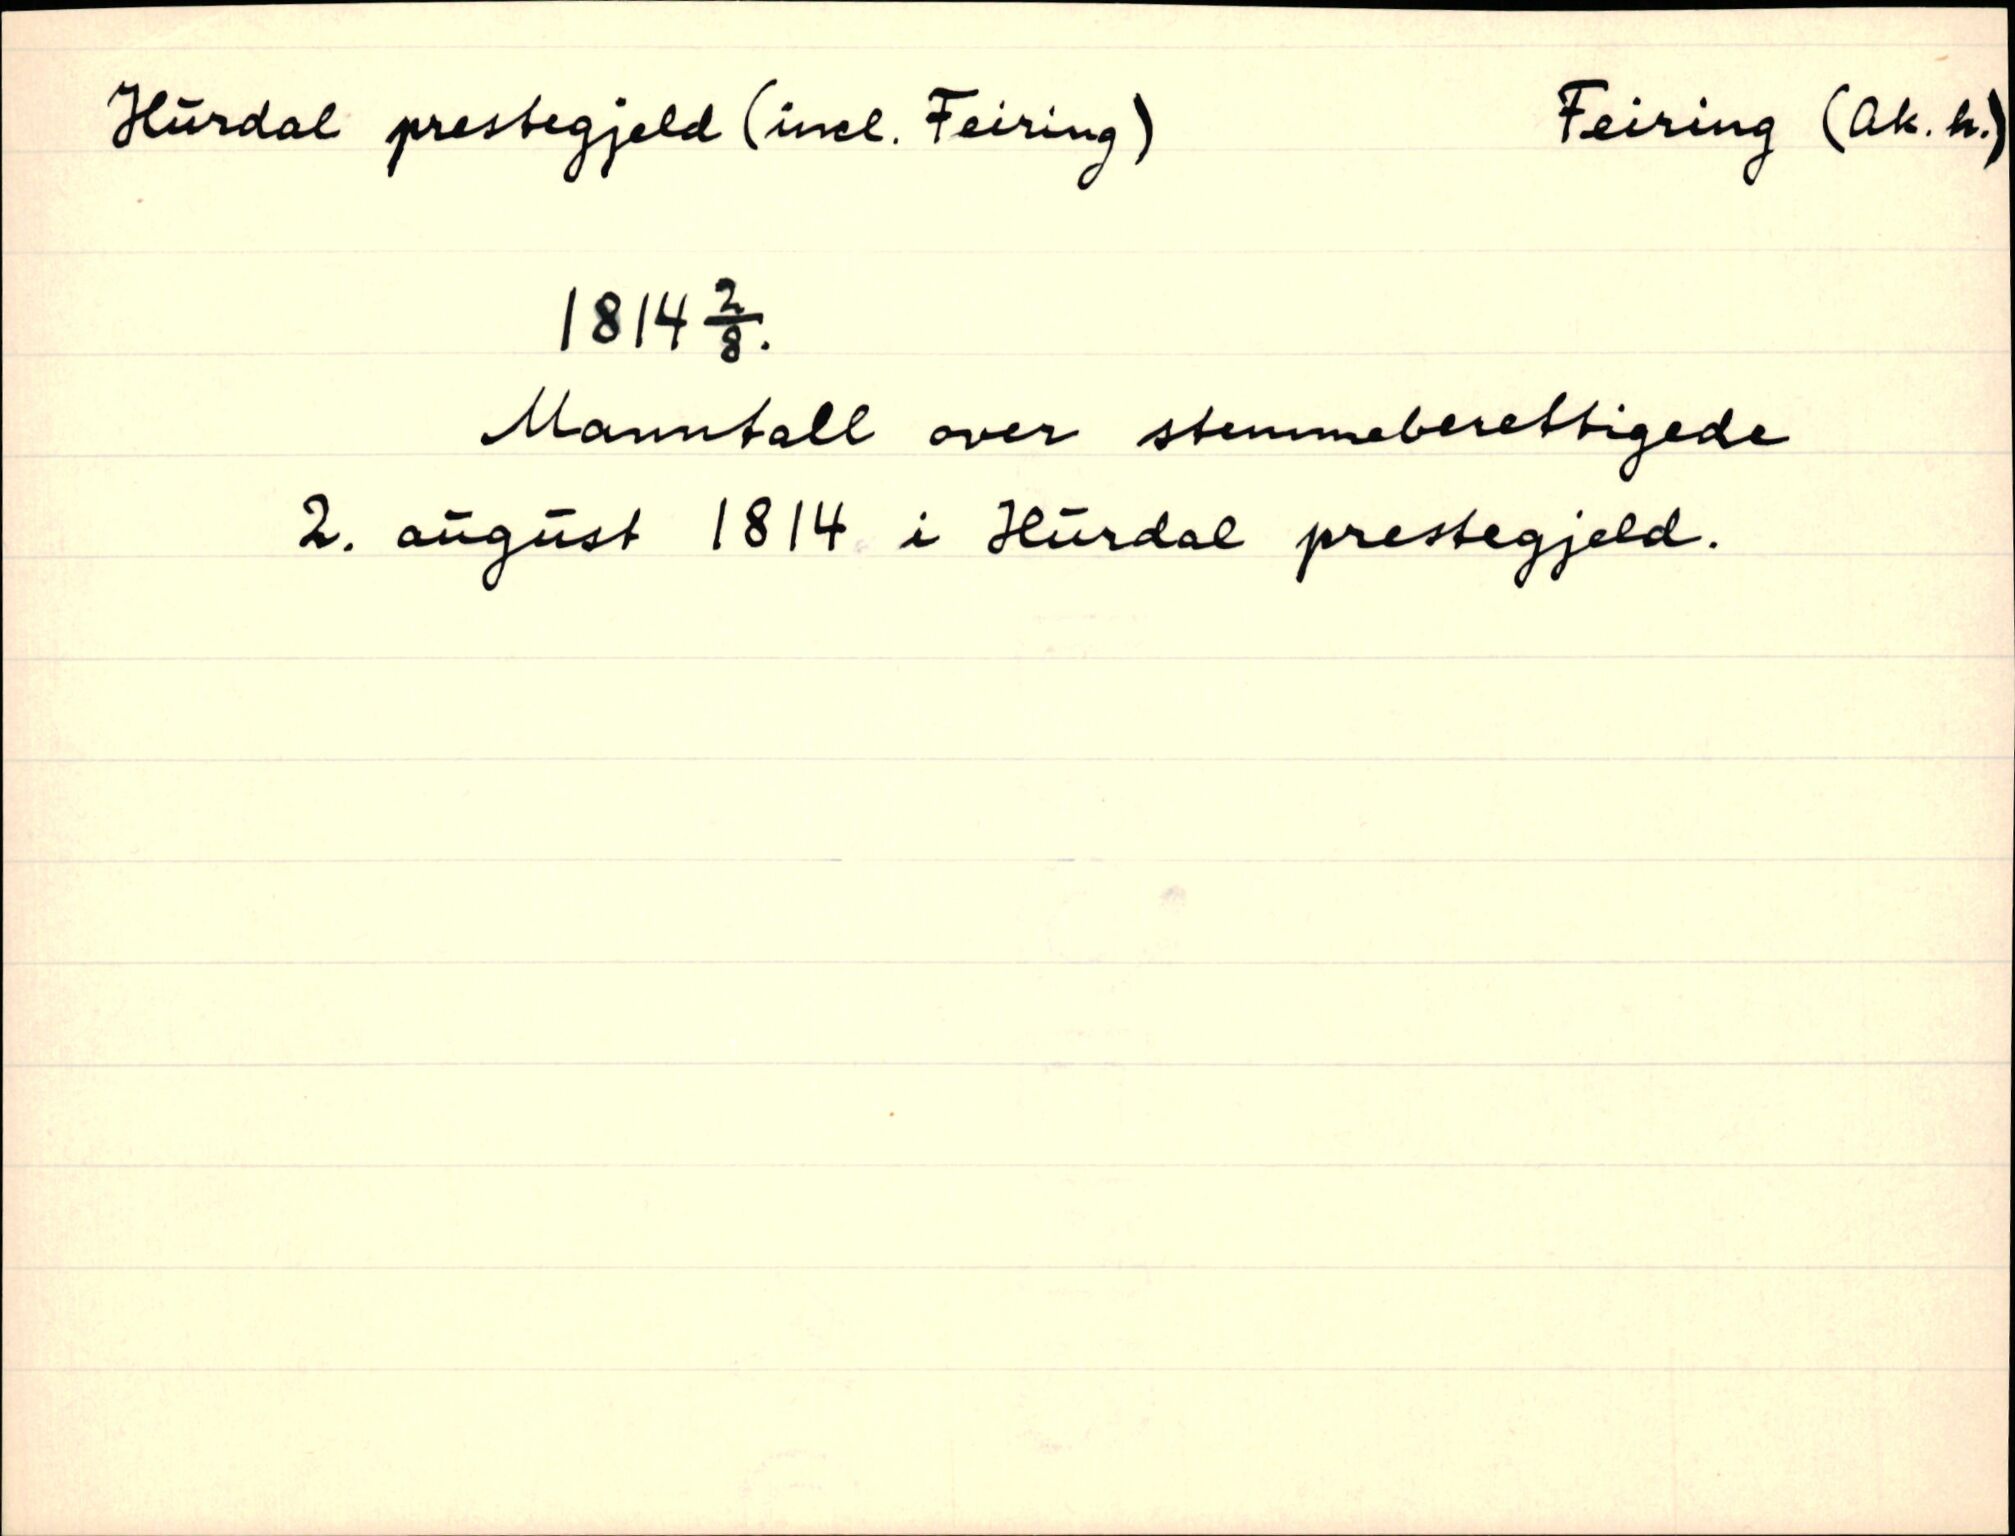 Hurdal prestegjeld (incl. Feiring) Feiring (Ak. h.)
1814 2/8.
Manntall over stemmeberettigede
2. august 1814 i Hurdal prestegjeld.